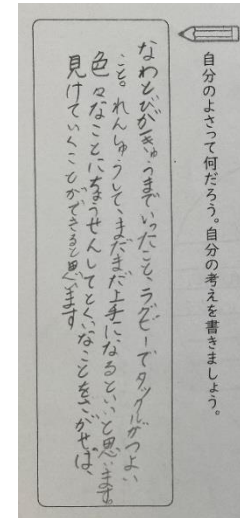 自分のよさって何だろう。自分の考えを書きましょう。
なわとびが1きゅうまでいったこと、ラグビーでタックルがつよい
こと。れんしゅうして、まだまだ上手になるといいと思います。
色々なことにちょうせんしてとくいなことをさがせば、
見けていくことができると思います